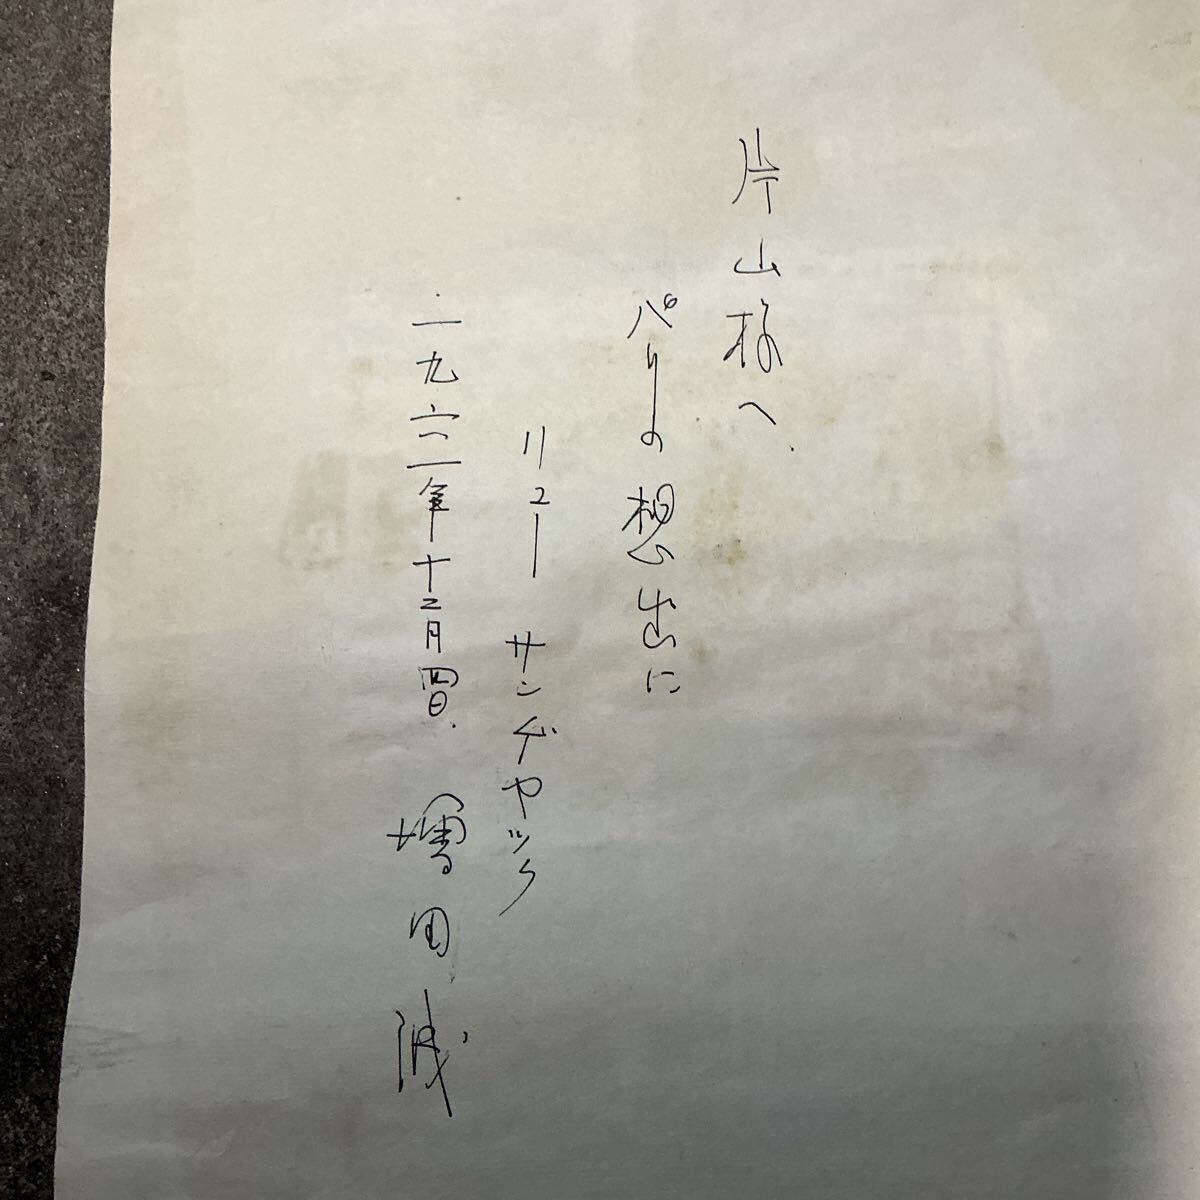 片山様へ.
パリーの想出に
リユー サンヂヤック
一九六一年十二月四日.
増田誠